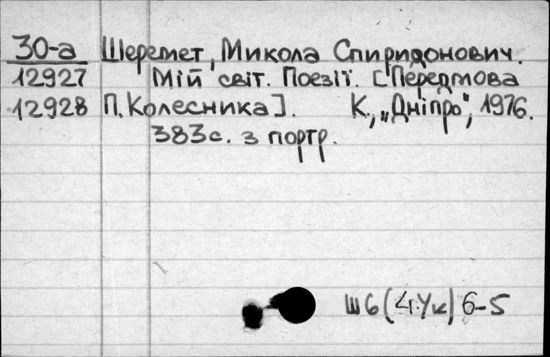 30-а Шеремет, Микола Спиридонович.
12927 Мій світ. Поезії. [Передмова
12928 П. Колесника]. К., „Дніпро", 1976.
383с. з портр.
Ш6(4Ук)6-5